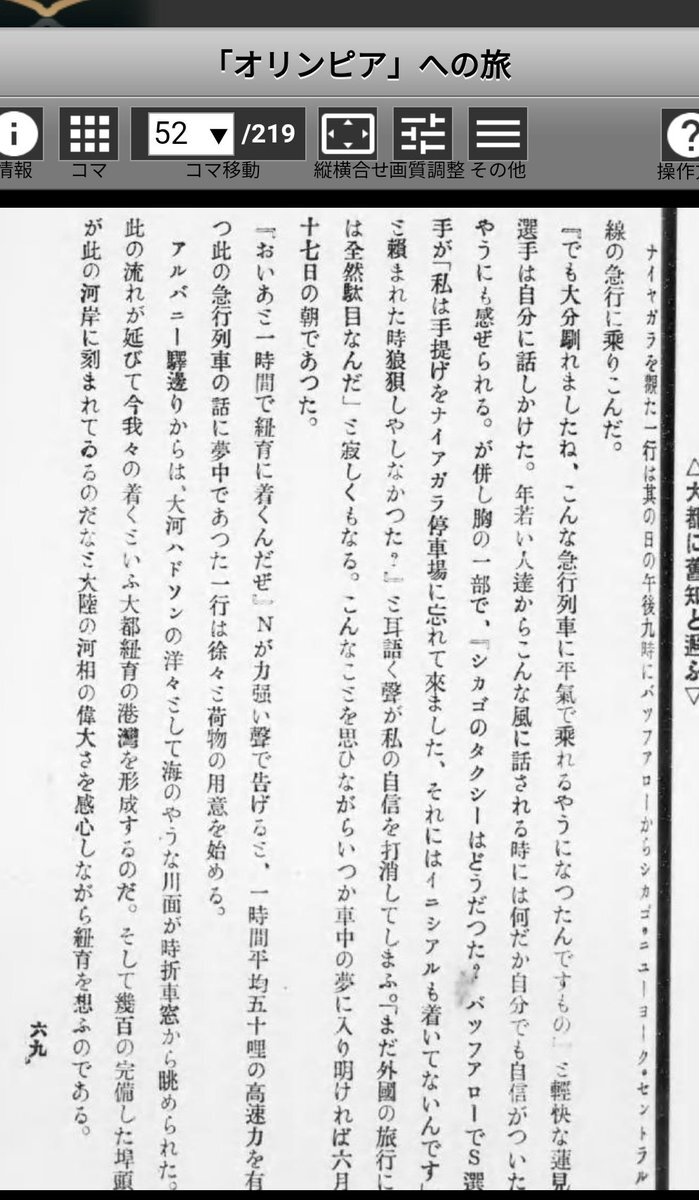 「オリンピア」への旅
情報
コマ
52 ▼ /219
コマ移動
縦横合せ
画質調整
その他
操作
△大都に舊知と遇ふ▽
ナイヤガラを觀た一行は其の日の午後九時にバツフアローからシカゴ・ニユーヨーク・セントラル
線の急行に乘りこんだ。
『でも大分馴れましたね、こんな急行列車に平氣で乘れるやうになつたんですもの』と輕快な蓮見
選手は自分に話しかけた。年若い人達からこんな風に話される時には何だか自分でも自信がついた
やうにも感ぜられる。が併し胸の一部で、『シカゴのタクシーはどうだつた？バツフアローでS選
手が「私は手提げをナイアガラ停車場に忘れて來ました、それにはイニシアルも着いてないんです」
と賴まれた時狼狽しやしなかつた？』と耳語く聲が私の自信を打消してしまふ。「まだ外國の旅行に
は全然駄目なんだ」と寂しくもなる。こんなことを思ひながらいつか車中の夢に入り明ければ六月
十七日の朝であつた。
『おいあと一時間で紐育に着くんだぜ』Nが力强い聲で告げると、一時間平均五十哩の高速力を有
つ此の急行列車の話に夢中であつた一行は徐々と荷物の用意を始める。
アルバニー驛邊りからは、大河ハドソンの洋々として海のやうな川面が時折車窓から眺められた。
此の流れが延びて今我々の着くといふ大都紐育の港灣を形成するのだ。そして幾百の完備した埠頭
が此の河岸に刻まれてゐるのだなと大陸の河相の偉大さを感心しながら紐育を想ふのである。
六九